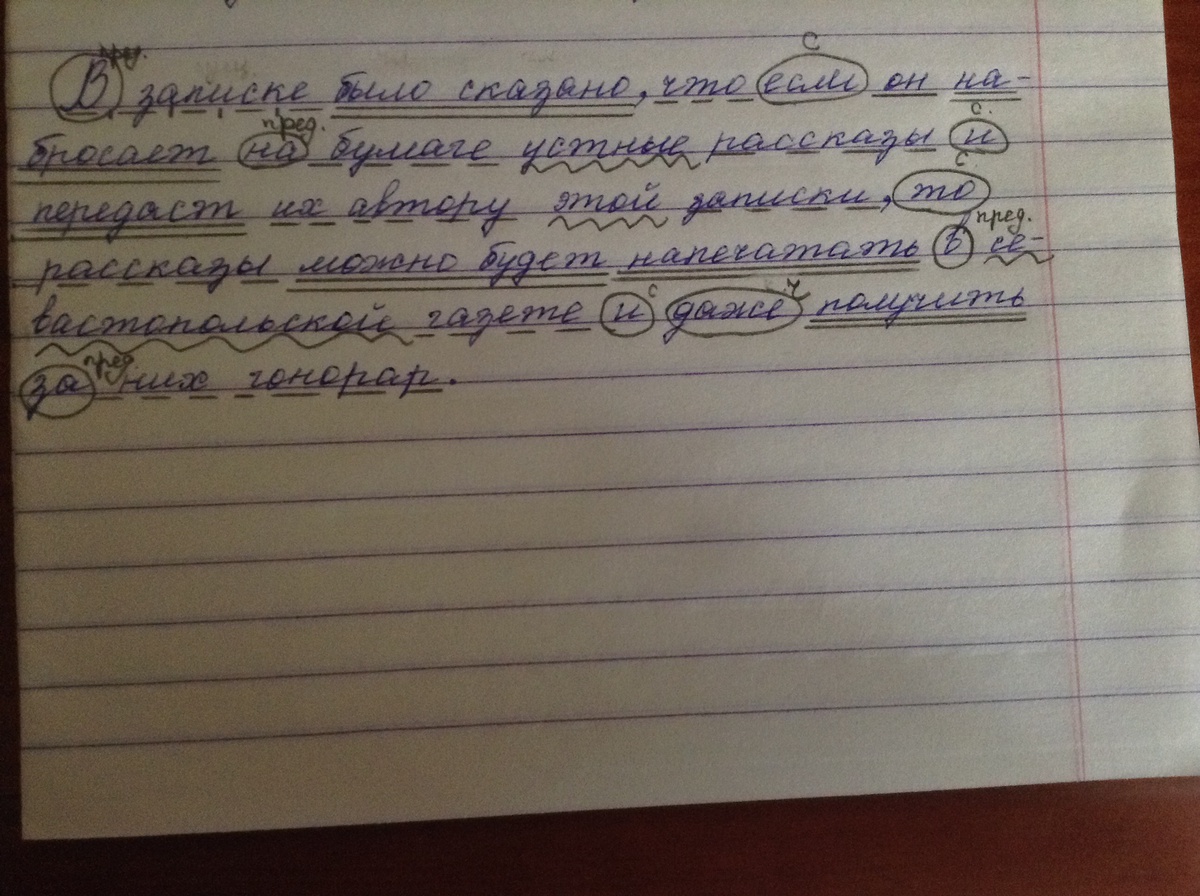 пред.
С
В записке было сказано, что если он на-
пред. С.
бросает на бумаге устные рассказы и
С
передаст их автору этой записки, то
пред.
рассказы можно будет напечатать в се-
С Ч
вастопольской газете и даже получить
пред
за них гонорар.